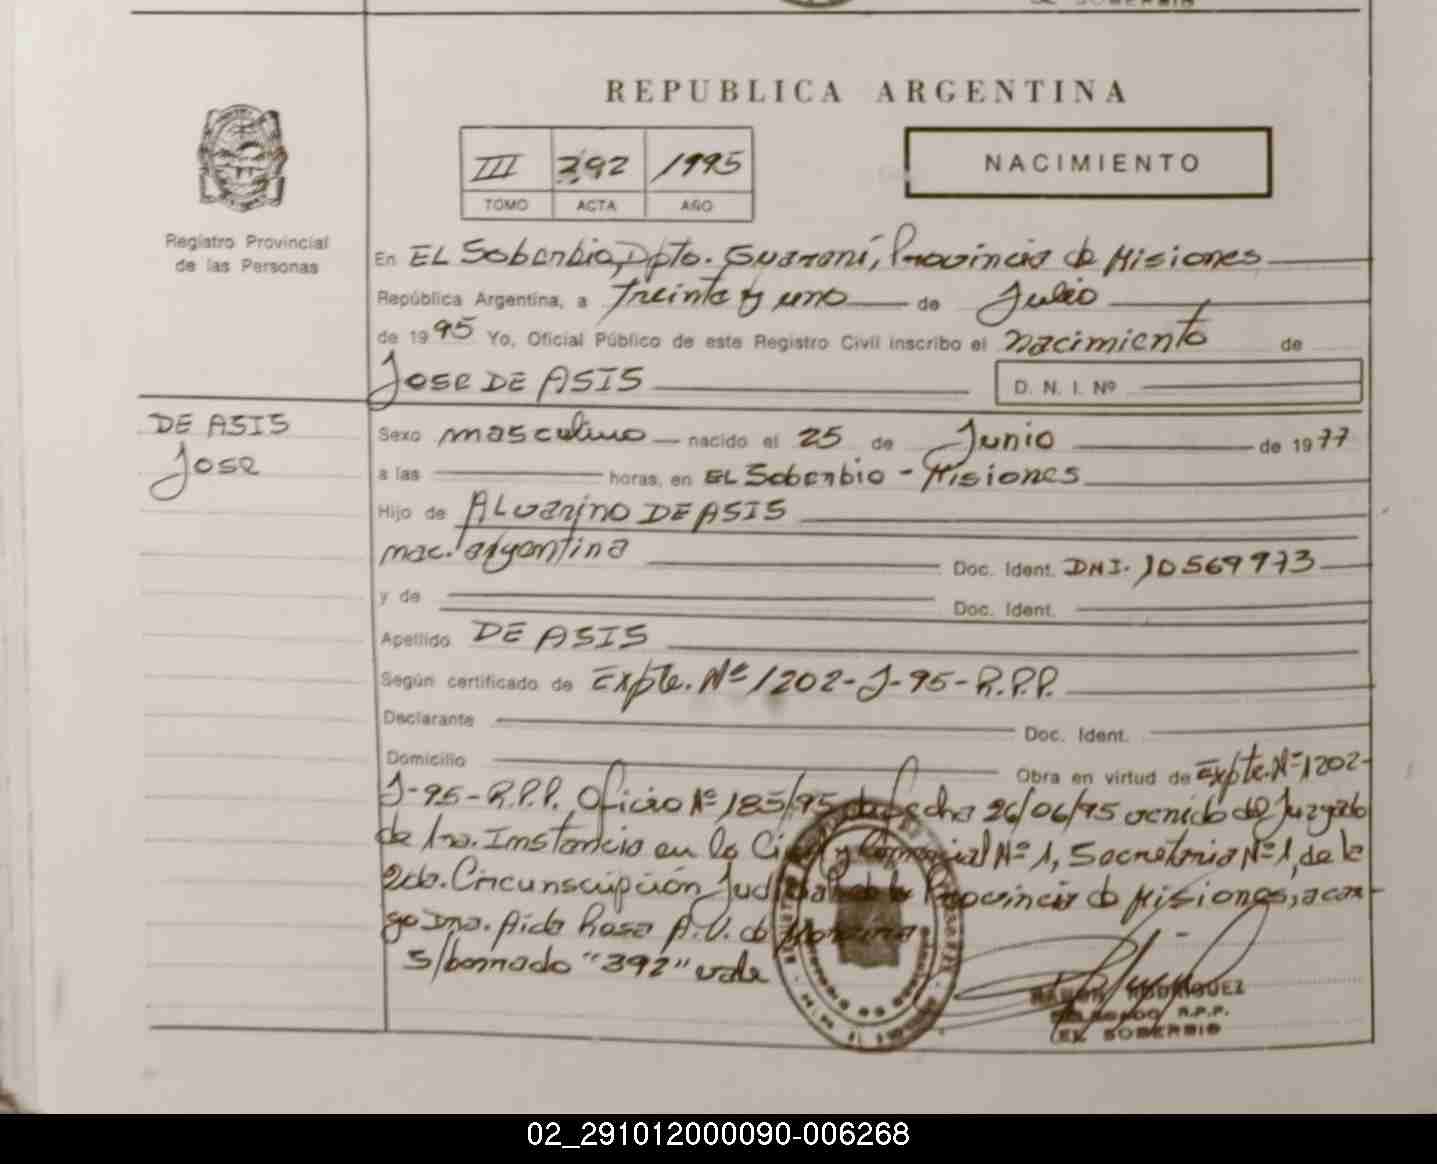 REPUBLICA ARGENTINA
III 392 1995
TOMO ACTA AÑO
NACIMIENTO
Registro Provincial
de las Personas
En EL Soberbio, Dpto. Guaraní, Provincia de Misiones
República Argentina, a treinta y uno de Julio
de 1995 Yo, Oficial Público de este Registro Civil inscribo el nacimiento de
Jose DE ASIS D. N. I. Nº
DE ASIS
Jose
Sexo masculino nacido el 25 de Junio de 1977
a las horas, en EL Soberbio - Misiones
Hijo de ALvarino DE ASIS
nac. argentina Doc. Ident. DNI. 10569973
y de Doc. Ident.
Apellido DE ASIS
Según certificado de Expte. Nº 1202-J-95-R.P.P.
Declarante Doc. Ident.
Domicilio Obra en virtud de Expte. Nº 1202-
J-95-R.P.P. Oficio Nº 185/95 de fecha 26/06/95 venido del Juzgado
de 1ra. Instancia en lo Civil y Comercial Nº 1, Secretaria Nº 1, de la
2da. Circunscripción Judicial de la Provincia de Misiones, a car-
go Dra. Aida Rosa A.V. de
S/borrado "392" vale
RAMON RODRIGUEZ
DELEGADO R.P.P.
EL SOBERBIO
02_291012000090-006268